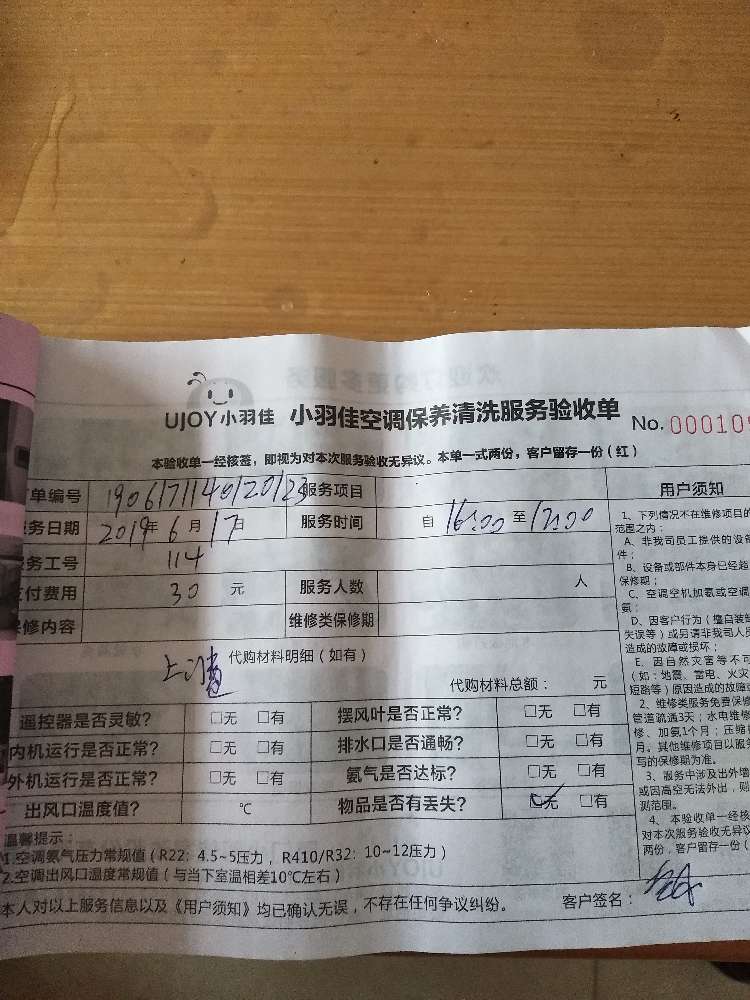 UJOY小羽佳 小羽佳空调保养清洗服务验收单 No. 00010
本验收单一经核签，即视为对本次服务验收无异议。本单一式两份，客户留存一份（红）
单编号 190617114 服务项目
务日期 2019年6月17日 服务时间 自 16:00 至 17:00
务工号 114
付费用 30 元 服务人数 人
修内容 维修类保修期
上门费 代购材料明细（如有）
代购材料总额： 元
遥控器是否灵敏？ □无 □有 摆风叶是否正常？ □无 □有
内机运行是否正常？ □无 □有 排水口是否通畅？ □无 □有
外机运行是否正常？ □无 □有 氨气是否达标？ □无 □有
出风口温度值？ ℃ 物品是否有丢失？ ☑无 □有
温馨提示：
1.空调氨气压力常规值（R22：4.5~5压力，R410/R32：10~12压力）
2.空调出风口温度常规值（与当下室温相差10℃左右）
本人对以上服务信息以及《用户须知》均已确认无误，不存在任何争议纠纷。 客户签名：
用户须知
1、下列情况不在维修项目的
范围之内：
A、非我司员工提供的设备
件；
B、设备或部件本身已经超
保修期；
C、空调空机加氨或空调
氨；
D、因客户行为（擅自装
失误等）或另请非我司人员
造成的故障或损坏；
E、因自然灾害等不可
（如：地震、雷电、火灾
短路等）原因造成的故障
2、维修类服务免费保修
管道疏通3天；水电维修
修、加氨1个月；压缩
月。其他维修项目以服务
写的保修期为准。
3、服务中涉及出外墙
或因高空无法外出，则
测范围。
4、本验收单一经核
对本次服务验收无异议
两份，客户留存一份（